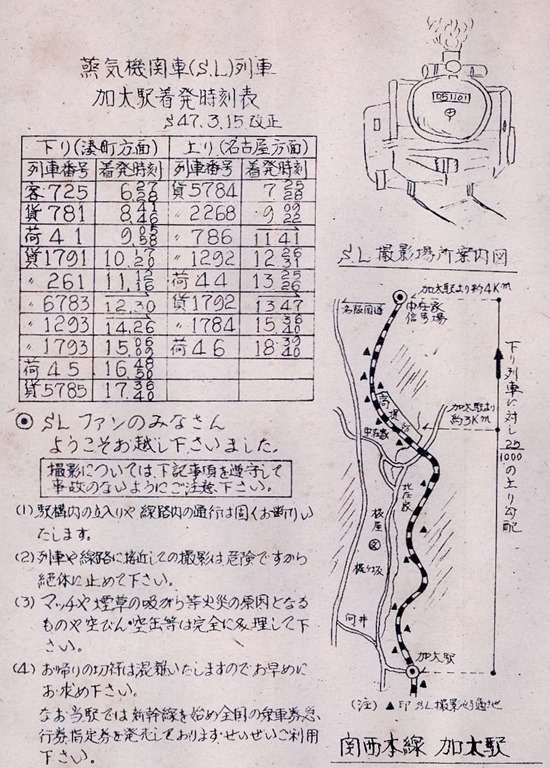 蒸気機関車(S.L)列車
加太駅着発時刻表
S47.3.15改正
下り(湊町方面) 上り(名古屋方面)
列車番号 着発時刻 列車番号 着発時刻
客 725 6.27 28 貨 5784 7 25 28
貨 781 8.41 46 〃 2268 9 09 22
荷 41 9.58 〃 786 11 41
貨 1791 10. 20 〃 1292 12 26 31
〃 261 11.12 荷 44 13 25 26
〃 6783 12.30 貨 1792 13 47
〃 1293 14.26 〃 1784 15 36 40
〃 1793 15.06 09 荷 46 18 39 40
荷 45 16.48 50
貨 5785 17.36 40
SL ファンのみなさん
ようこそお越し下さいました。
撮影については、下記事項を遵守して
事故のないようにご注意下さい。
(1) 駅構内の立入りや線路内の通行は固くお断りい
たします。
(2) 列車や線路に接近しての撮影は危険ですから
絶体に止めて下さい。
(3) マッチや煙草の吸がら等火災の原因となる
ものや空びん空缶等は完全に処理して下
さい。
(4) お帰りの切符は混雑いたしますのでお早めに
お求め下さい。
なお当駅では新幹線を始め全国の乗車券急
行券指定券を発売しております。せいぜいご利用
下さい。
D51101
S.L 撮影場所案内図
加太駅より約4Km
中在家
信号場
名阪国道
加太駅より
約3Km
中在家
北在家
板屋
向井
加太駅
下り列車に対し25/1000の上り勾配
(注) ▲印 SL撮影好適地
関西本線 加太駅